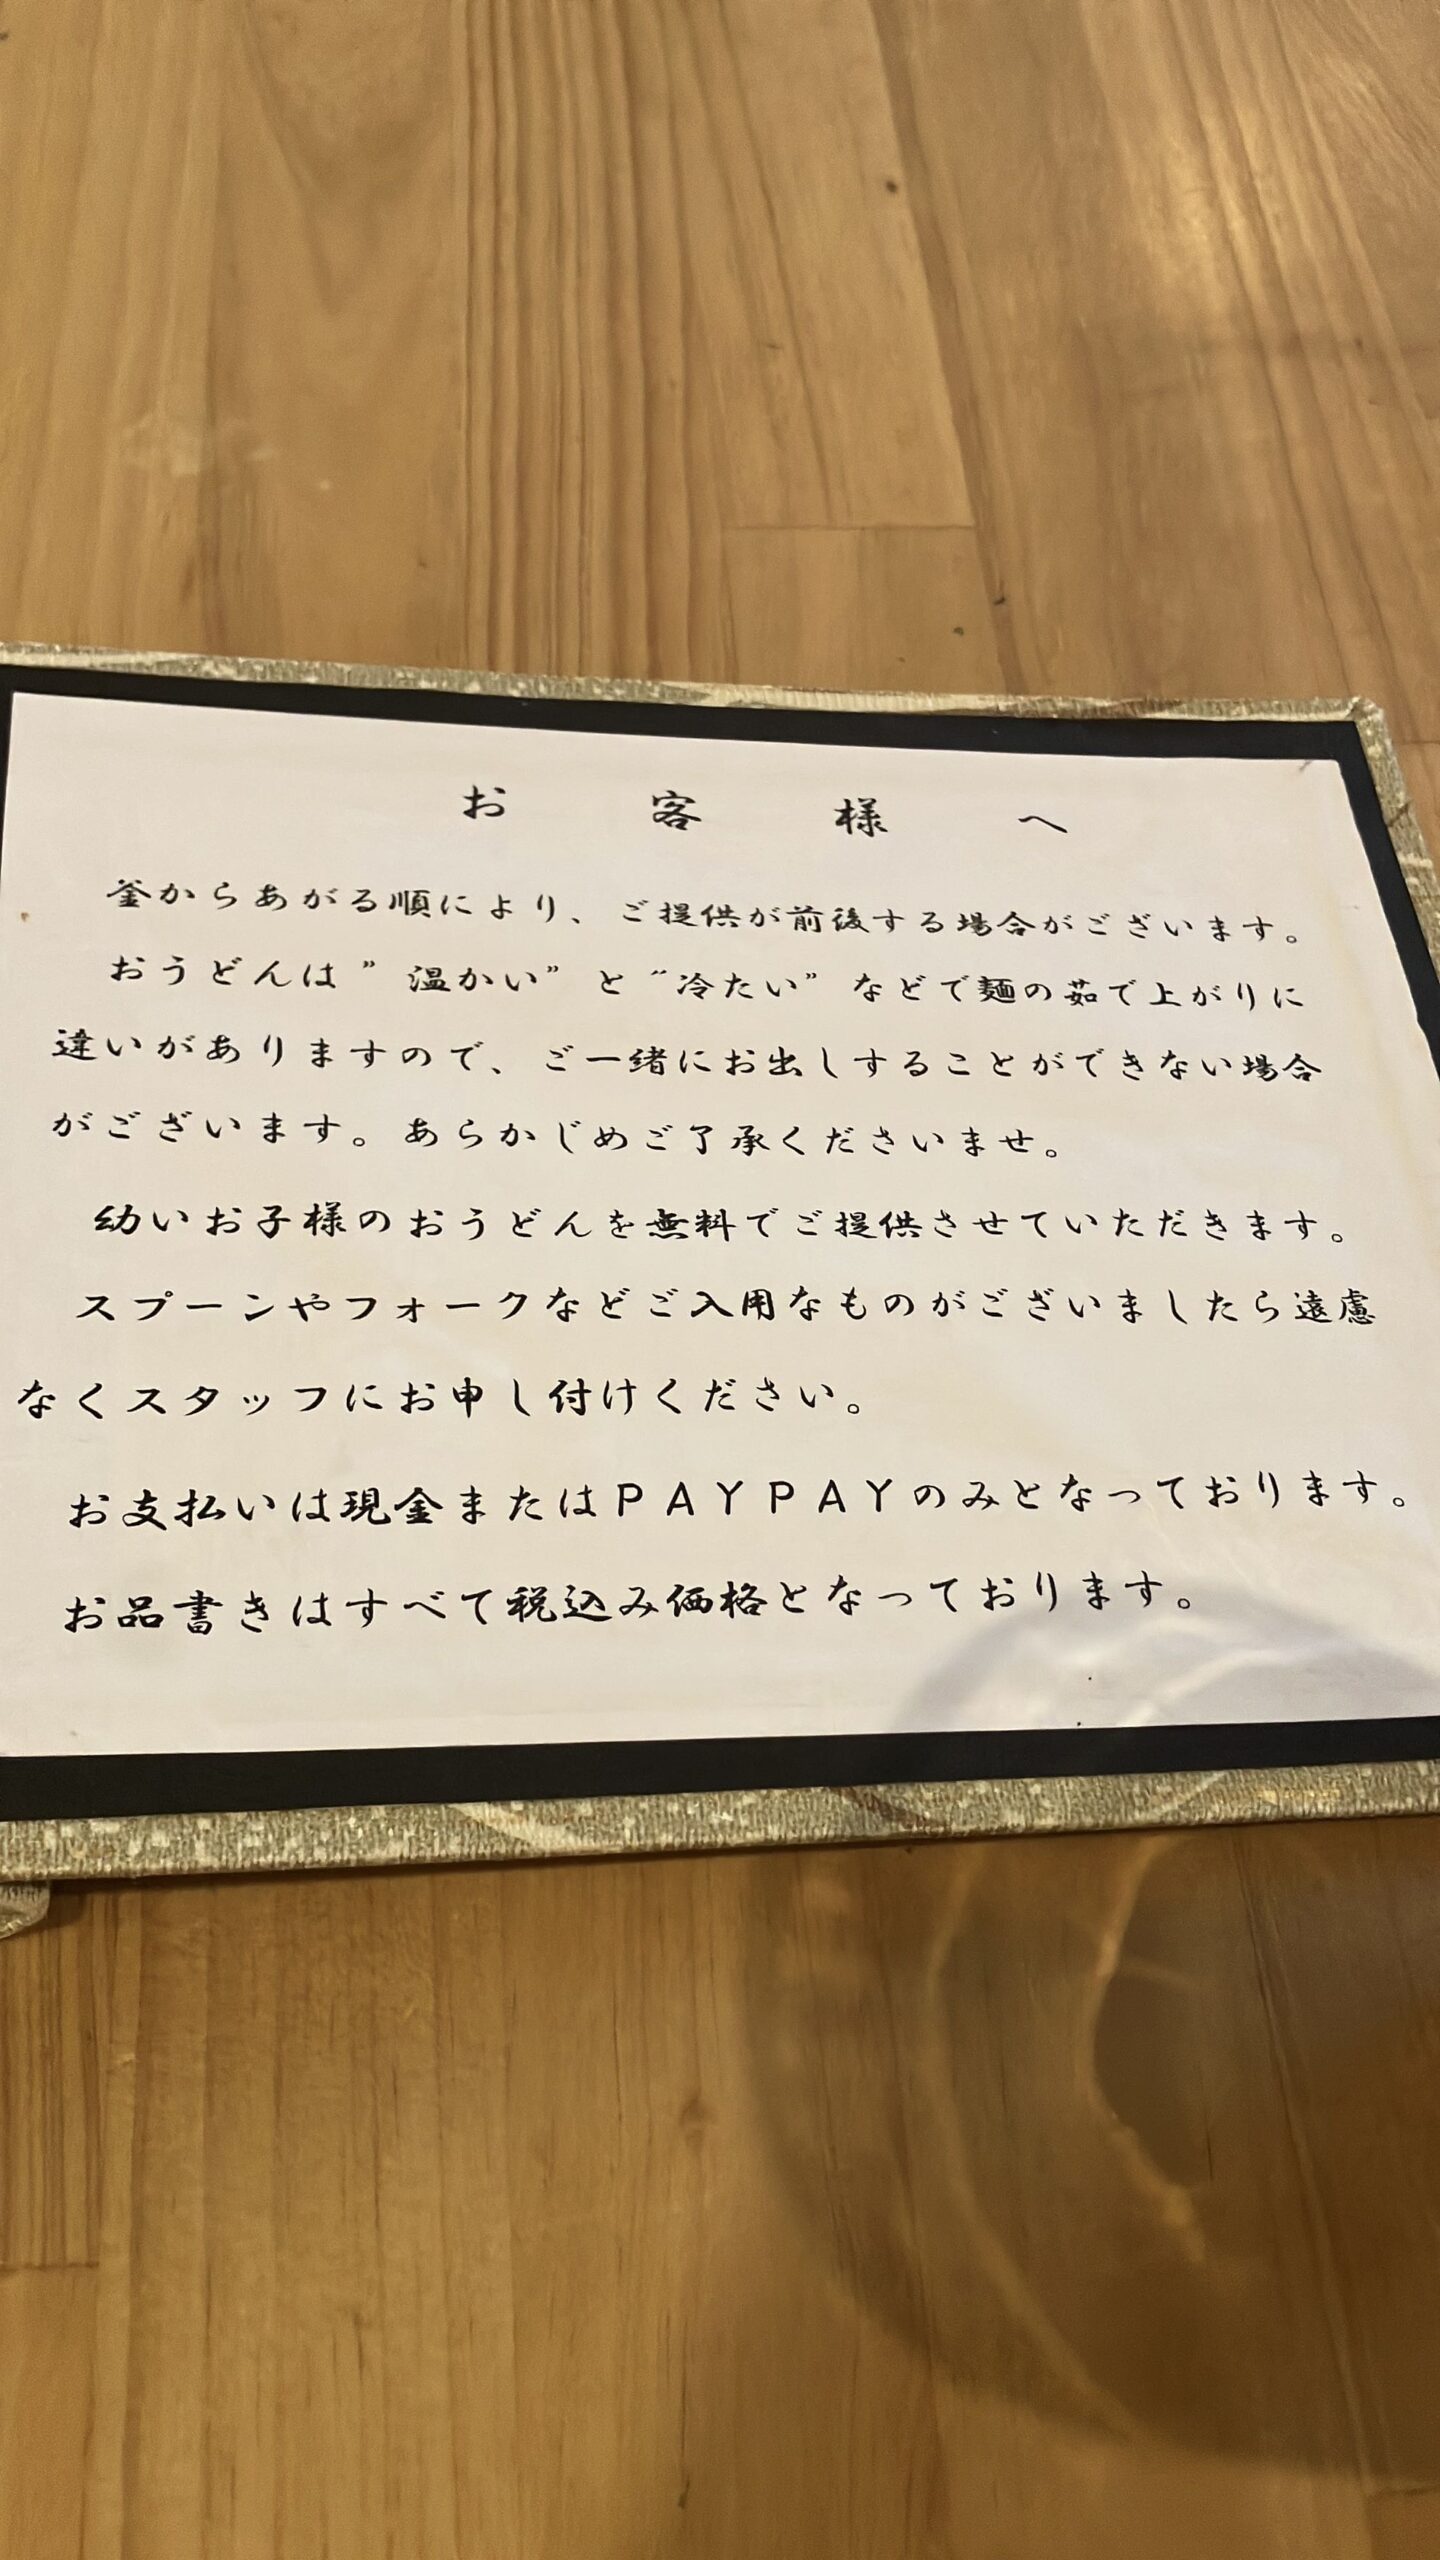 お客様へ
釜からあがる順により、ご提供が前後する場合がございます。
おうどんは”温かい”と“冷たい”などで麺の茹で上がりに
違いがありますので、ご一緒にお出しすることができない場合
がございます。あらかじめご了承くださいませ。
幼いお子様のおうどんを無料でご提供させていただきます。
スプーンやフォークなどご入用なものがございましたら遠慮
なくスタッフにお申し付けください。
お支払いは現金またはＰＡＹＰＡＹのみとなっております。
お品書きはすべて税込み価格となっております。